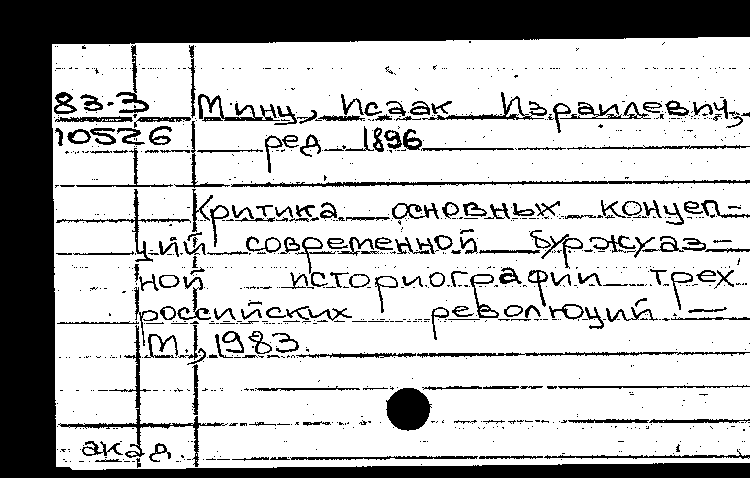 83-3 Минц, Исаак Израилевич,
10526 ред. 1896
Критика основных концеп-
ций современной буржуаз-
ной историографии трех
российских революций. —
М., 1983.
акад.